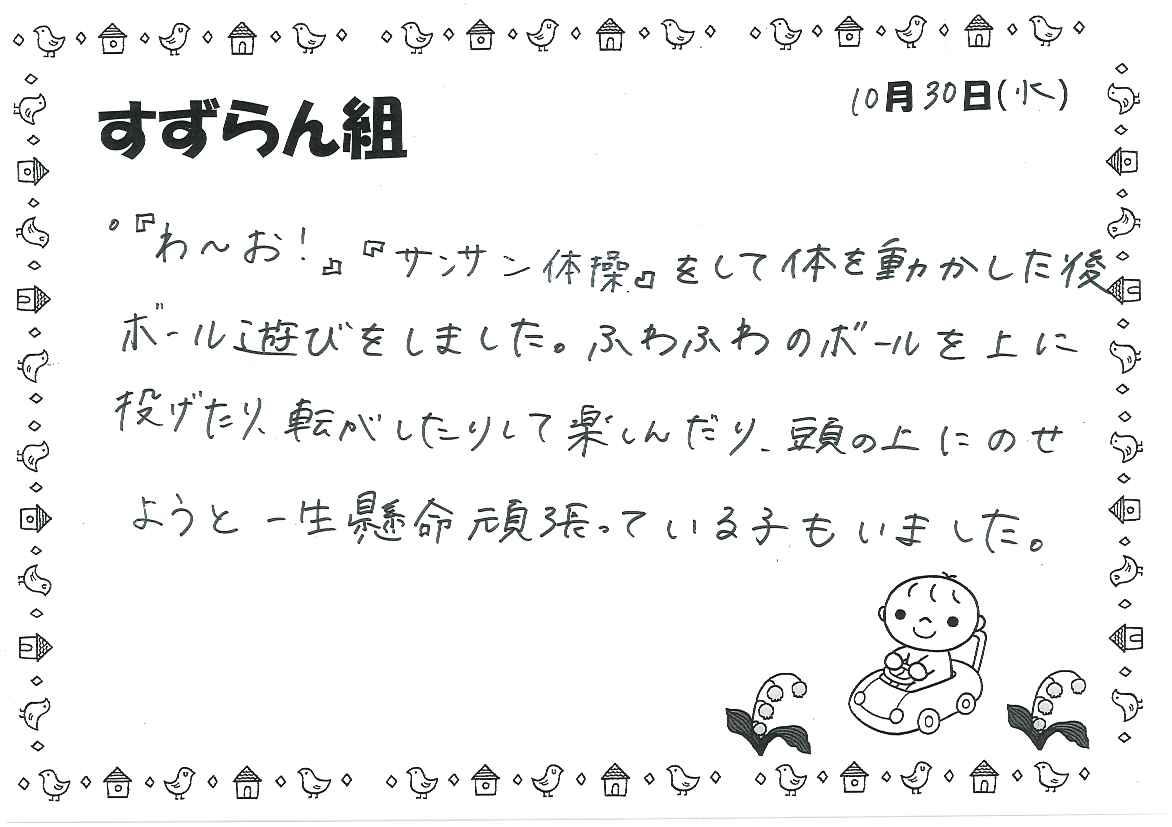 すずらん組
10月30日(水)
。『わ～お!』『サンサン体操』をして体を動かした後
ボール遊びをしました。ふわふわのボールを上に
投げたり、転がしたりして楽しんだり、頭の上にのせ
ようと一生懸命頑張っている子もいました。